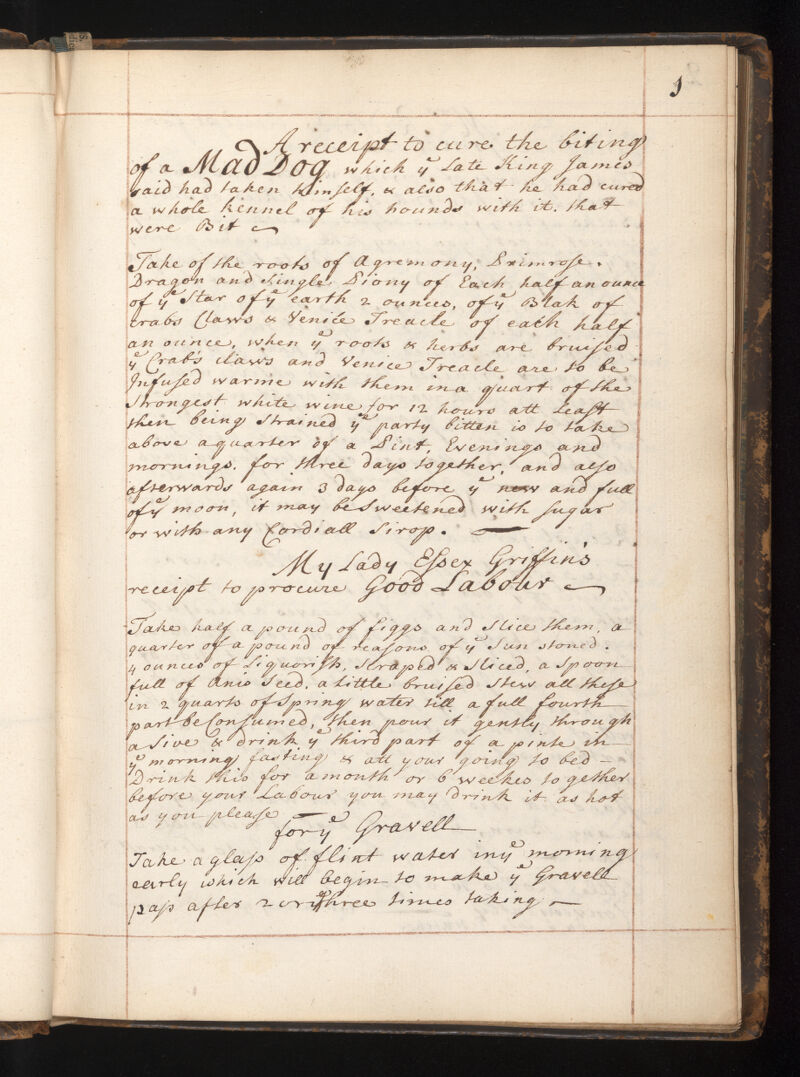 1
A receipt to cure the biting
of a Mad Dog which ye Late King James
said had taken himself, & also that he had cured
a whole kennel of his hounds with it. that
were Bit
Take of the roots of Agremony, Primrose.
Dragon and Single Piony of Each half an ounce
of ye Star of ye earth 2 ounces, of ye Blak of
crabs Claws & Venice Treacle of each half
an ounce, when ye roots & herbs are bruised
ye Crab's claws and Venice Treacle are to be
Infused warme with them in a quart of the
strongest white wine for 12 hours att Least
then being strained ye party bitten is to take
above a quarter of a Pint, Evenings and
mornings. for three days together, and also
afterwards again 3 days before ye new and full
of ye moon, it may be sweetened with sugar
or with any Cordiall Sirop.
My Lady Essex Griffin's
receipt to procure Good Labour
Take half a pound of figgs and slice them, a
quarter of a pound of reasons of ye Sun stoned.
4 ounces of Liquorish, scraped & sliced, a spoon
full of Anis seed, a little bruised stew all these
in 2 quarts of spring water till a full fourth
part be Consumed, then pour it gently through
a sive & drink ye third part of a pinte in
ye morning fasting & att your going to bed
Drink this for a month or 6 weekes together
before your Labour you may drink it as hot
as you please
for ye Gravell
Take a glass of flint water in ye morning
early which will begin to make ye Gravell
pass after 2 or three times taking